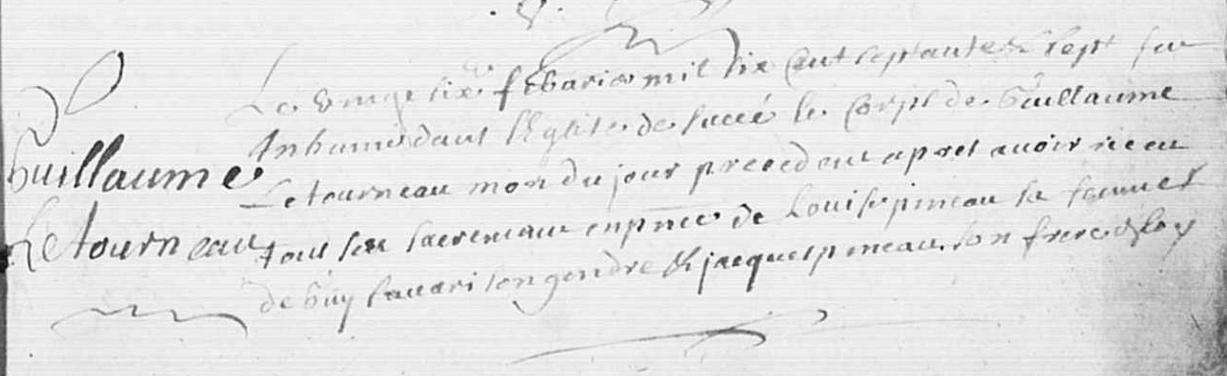 Guillaume
Letourneau
Le vingt six febvrier mil six cent septante & sept fut
Inhumé dans l'Eglise de succé le Corps de Guillaume
Letourneau mort du jour precedent apres avoir receu
tous ses sacremans en pñce de Louise pineau sa femme &
de Guy savari son gendre & jacques pineau son frere